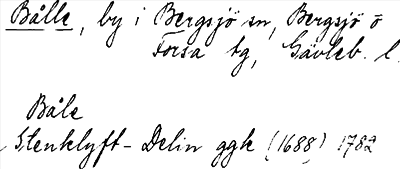 Bålle, by i Bergsjö sn, Bergsjö o
Forsa tg, Gävleb. l.
Båle
Stenklyft - Delin ggk (1688) 1782